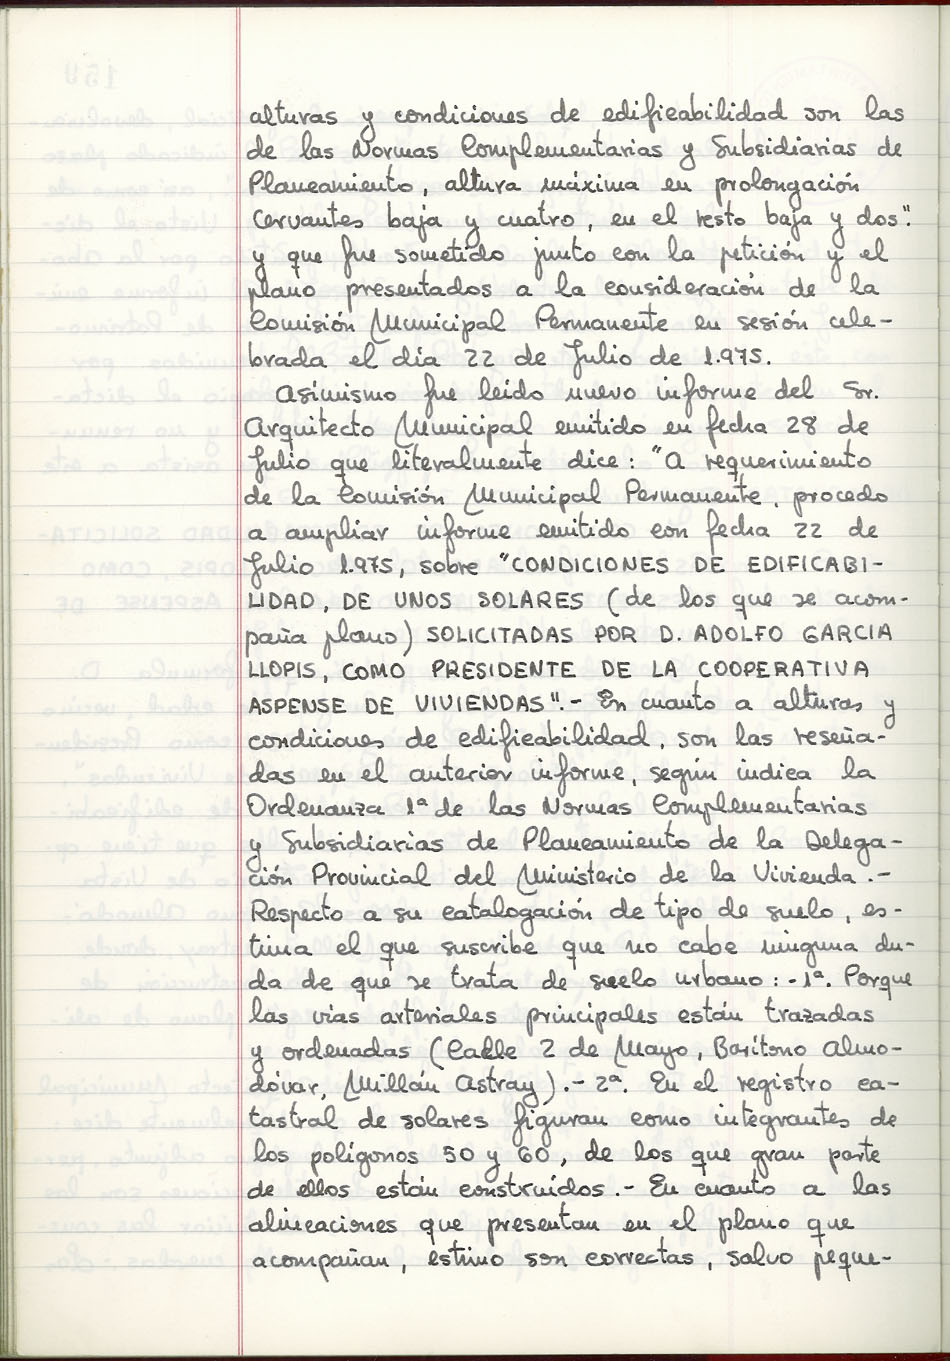 alturas y condiciones de edificabilidad son las
de las Normas Complementarias y Subsidiarias de
Planeamiento, altura máxima en prolongación
Cervantes baja y cuatro, en el resto baja y dos".
y que fue sometido junto con la petición y el
plano presentados a la consideración de la
Comisión Municipal Permanente en sesión cele-
brada el día 22 de Julio de 1.975.
Asimismo fue leído nuevo informe del Sr.
Arquitecto Municipal emitido en fecha 28 de
Julio que literalmente dice: "A requerimiento
de la Comisión Municipal Permanente, procedo
a ampliar informe emitido con fecha 22 de
Julio 1.975, sobre "CONDICIONES DE EDIFICABI-
LIDAD, DE UNOS SOLARES (de los que se acom-
paña plano) SOLICITADAS POR D. ADOLFO GARCIA
LLOPIS, COMO PRESIDENTE DE LA COOPERATIVA
ASPENSE DE VIVIENDAS".- En cuanto a alturas y
condiciones de edificabilidad, son las reseña-
das en el anterior informe, según indica la
Ordenanza 1ª de las Normas Complementarias
y Subsidiarias de Planeamiento de la Delega-
ción Provincial del Ministerio de la Vivienda.-
Respecto a su catalogación de tipo de suelo, es-
tima el que suscribe que no cabe ninguna du-
da de que se trata de suelo urbano:-1ª. Porque
las vías arteriales principales están trazadas
y ordenadas (Calle 2 de Mayo, Barítono Almo-
dóvar, Millán Astray).- 2ª. En el registro ca-
tastral de solares figuran como integrantes de
los polígonos 50 y 60, de los que gran parte
de ellos están construidos.- En cuanto a las
alineaciones que presentan en el plano que
acompañan, estimo son correctas, salvo peque-